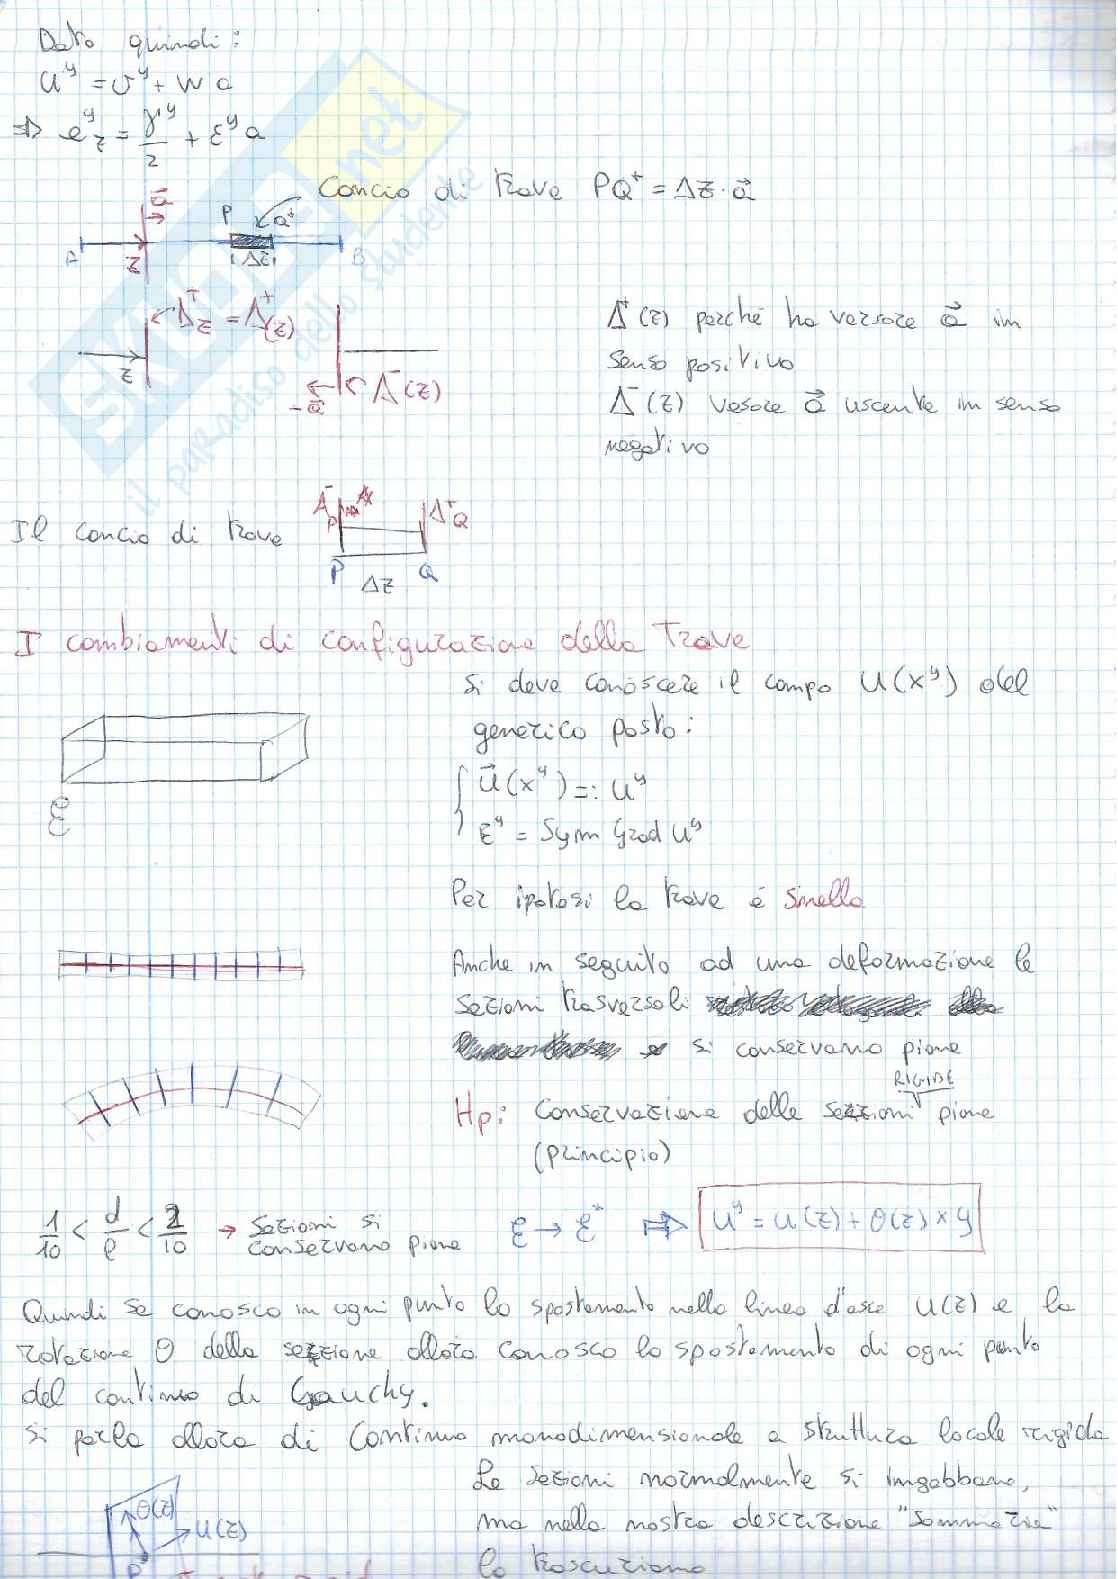 Dato quindi:
u^y = v^y + w a
⇒ e^y_z = γ^y/2 + ε^y a
Concio di trave PQ⁺ = Δz · a⃗
a⃗
P Q⁺
A z Δz B
Δ⁺_z = Δ⁺(z)
z -a⃗ Δ⁻(z)
Δ⁺(z) perché ha versore a⃗ in
senso positivo
Δ⁻(z) vesore a⃗ uscente in senso
negativo
Il concio di trave
Δ⁻P Δ⁺Q
P Δz Q
I cambiamenti di configurazione della Trave
Si deve conoscere il campo U(x^y) del
generico posto:
u⃗(x^y) =: u^y
ε^y = Sym Grad u^y
Per ipotesi la trave é Snella
Anche in seguito ad una deformazione le
sezioni trasversali
si conservano piane
RIGIDE
Hp: Conservazione delle sezioni piane
(principio)
1/10 < d/ℓ < 2/10 → Sezioni si
conservano piane
ℰ → ℰ* ⇒ u^y = u(z) + θ(z) × y
Quindi se conosco in ogni punto lo spostamento nella linea d'asse u(z) e la
rotazione θ della sezione allora conosco lo spostamento di ogni punto
del continuo di Cauchy.
Si parla allora di Continuo monodimensionale a struttura locale rigida
Le sezioni normalmente si ingobbano,
ma nella nostra descrizione "sommaria"
lo trascuriamo
θ(z)
u(z)
P
SKUOLA.net
il paradiso dello studente